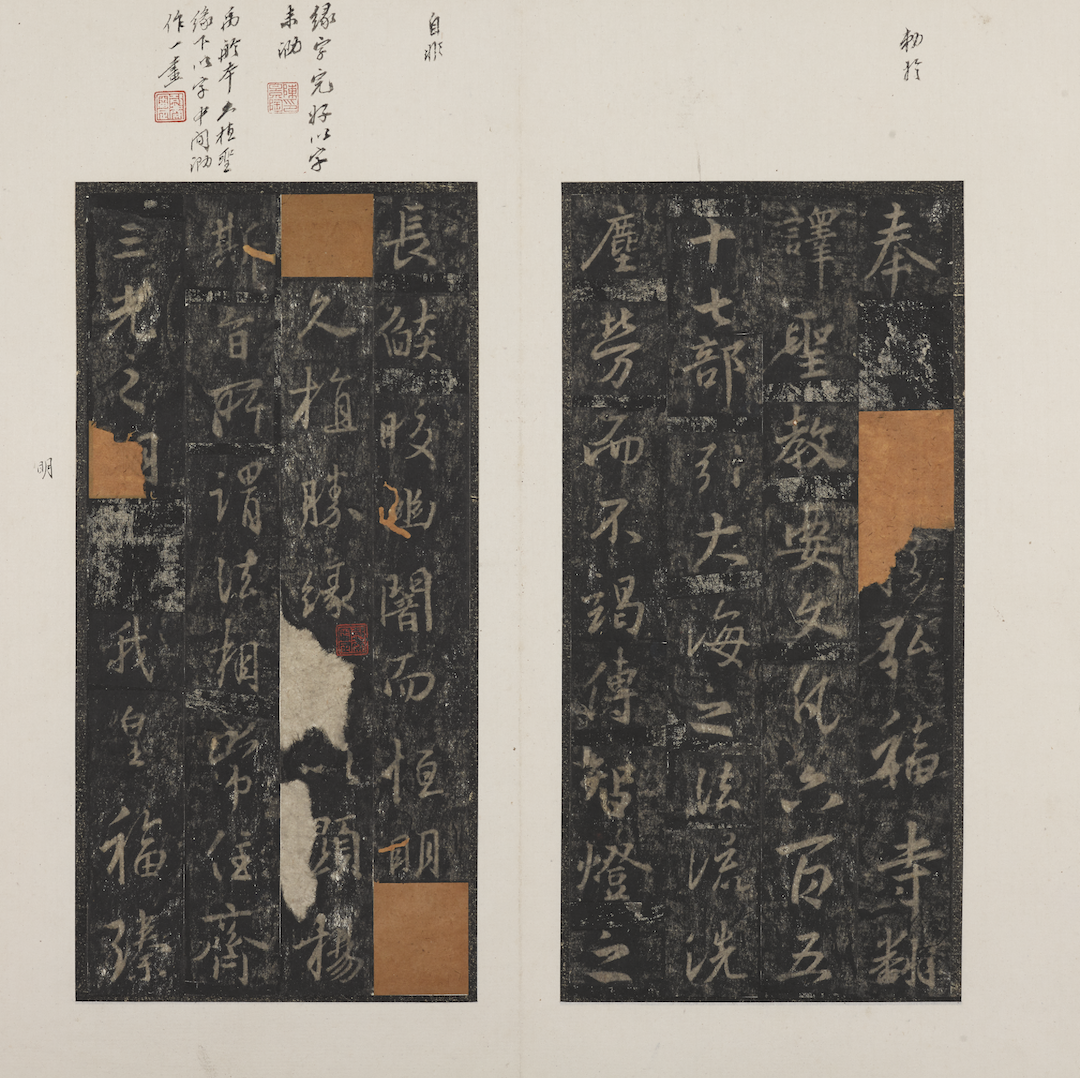 勅於
奉
於弘福寺翻
譯聖教要文凡六百五
十七部引大海之法流洗
塵勞而不竭傳智燈之
自非
緣字完好以字
未泐
禹舲本久植聖
緣下以字中間泐
作一畫
長燄皎幽闇而恒明
久植勝緣
以顯揚
斯旨所謂法相常住齊
三光之明
我皇福臻
明